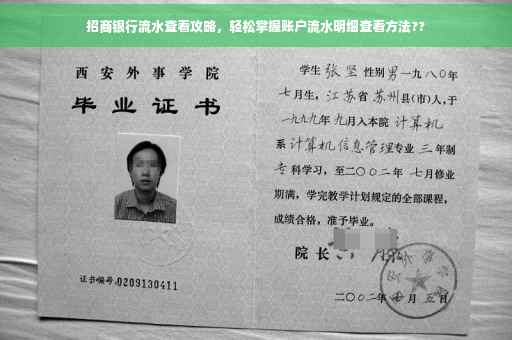 招商银行流水查看攻略，轻松掌握账户流水明细查看方法??
西安外事学院
毕业证书
证书编号:0209130411
学生 张坚 性别 男 一九八〇年
七月生，江苏省 苏州县(市)人，于
一九九九年 九月入本院 计算机
系 计算机信息管理专业 三 年制
专科学习，至二〇〇二年 七月修业
期满，学完教学计划规定的全部课程，
成绩合格，准予毕业。
院长
二〇〇二年 七 月 五 日